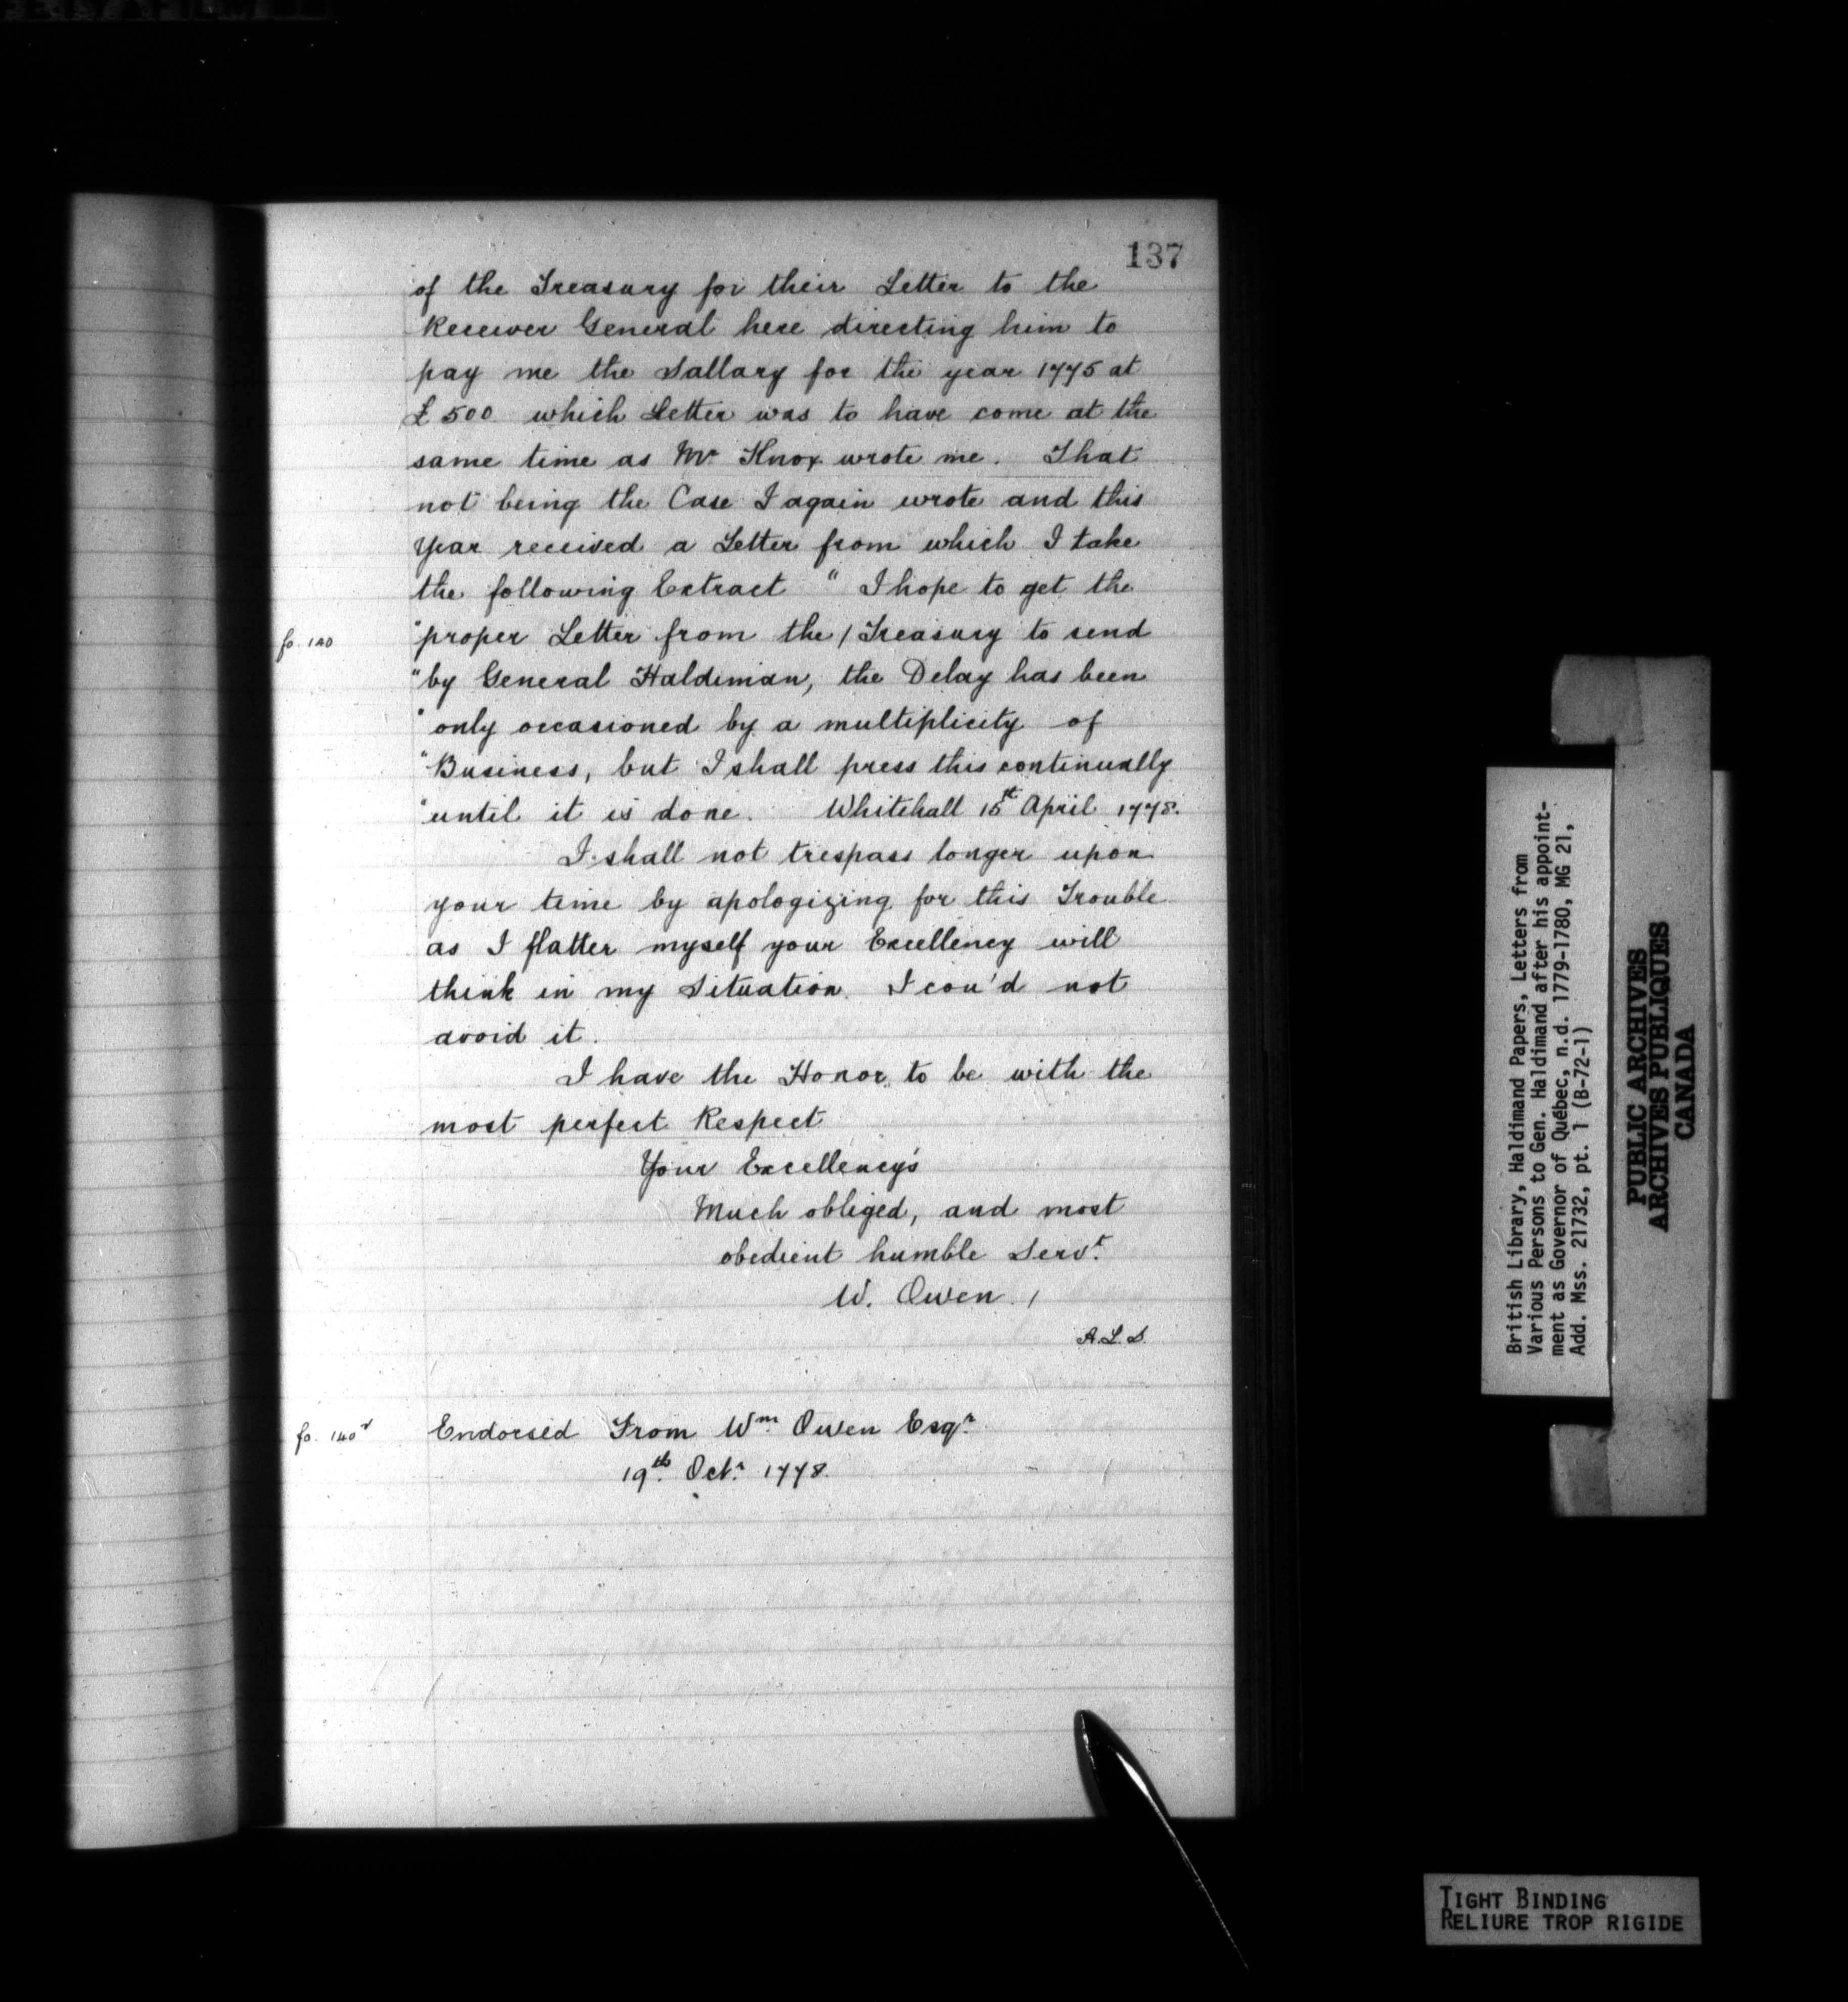 137
of the Treasury for their Letter to the
Receiver General here directing him to
pay me the Sallary for the year 1775 at
£500 which Letter was to have come at the
same time as Mr Knox wrote me. That
not being the Case I again wrote and this
Year received a Letter from which I take
the following Extract " I hope to get the
fo. 140 "proper Letter from the / Treasury to send
"by General Haldiman, the Delay has been
"only occasioned by a multiplicity of
"Business, but I shall press this continually
"until it is done. Whitehall 15th April 1778.
I shall not trespass longer upon
your time by apologizing for this Trouble
as I flatter myself your Excellency will
think in my Situation I cou'd not
avoid it.
I have the Honor to be with the
most perfect Respect
Your Excellency's
Much obliged, and most
obedient humble Servt.
W. Owen /
A.L.S.
fo. 140v Endorsed From Wm. Owen Esqr.
19th. Octr. 1778.
British Library, Haldimand Papers, Letters from
Various Persons to Gen. Haldimand after his appoint-
ment as Governor of Québec, n.d. 1779-1780, MG 21,
Add. Mss. 21732, pt. 1 (B-72-1)
PUBLIC ARCHIVES
ARCHIVES PUBLIQUES
CANADA
TIGHT BINDING
RELIURE TROP RIGIDE